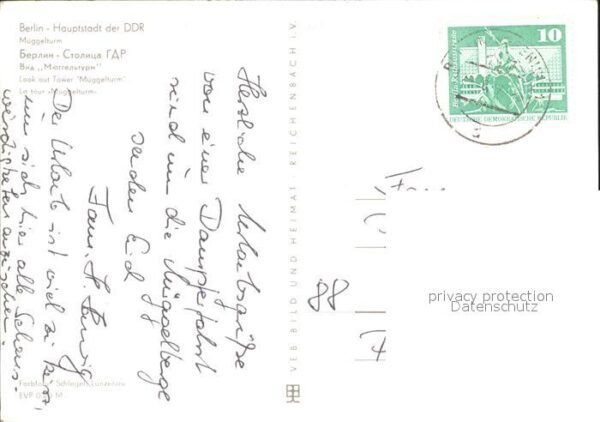 Berlin - Hauptstadt der DDR
Müggelturm
Берлин - Столица ГДР
Вид „Мюггельтурм“
Look out Tower "Müggelturm"
La tour »Müggelturm«
Herzliche Urlaubsgrüße
von einer Dampferfahrt
rund um die Müggelberge
senden Euch
Fam. H.
Der Urlaub ist viel zu kurz,
um sich hier alle Sehens-
würdigkeiten anzusehen.
VEB BILD UND HEIMAT · REICHENBACH i.V.
Farbfoto: Schlegel,
EVP 0,20 M
10
Berlin, Rathausstraße
DEUTSCHE DEMOKRATISCHE REPUBLIK
privacy protection
Datenschutz